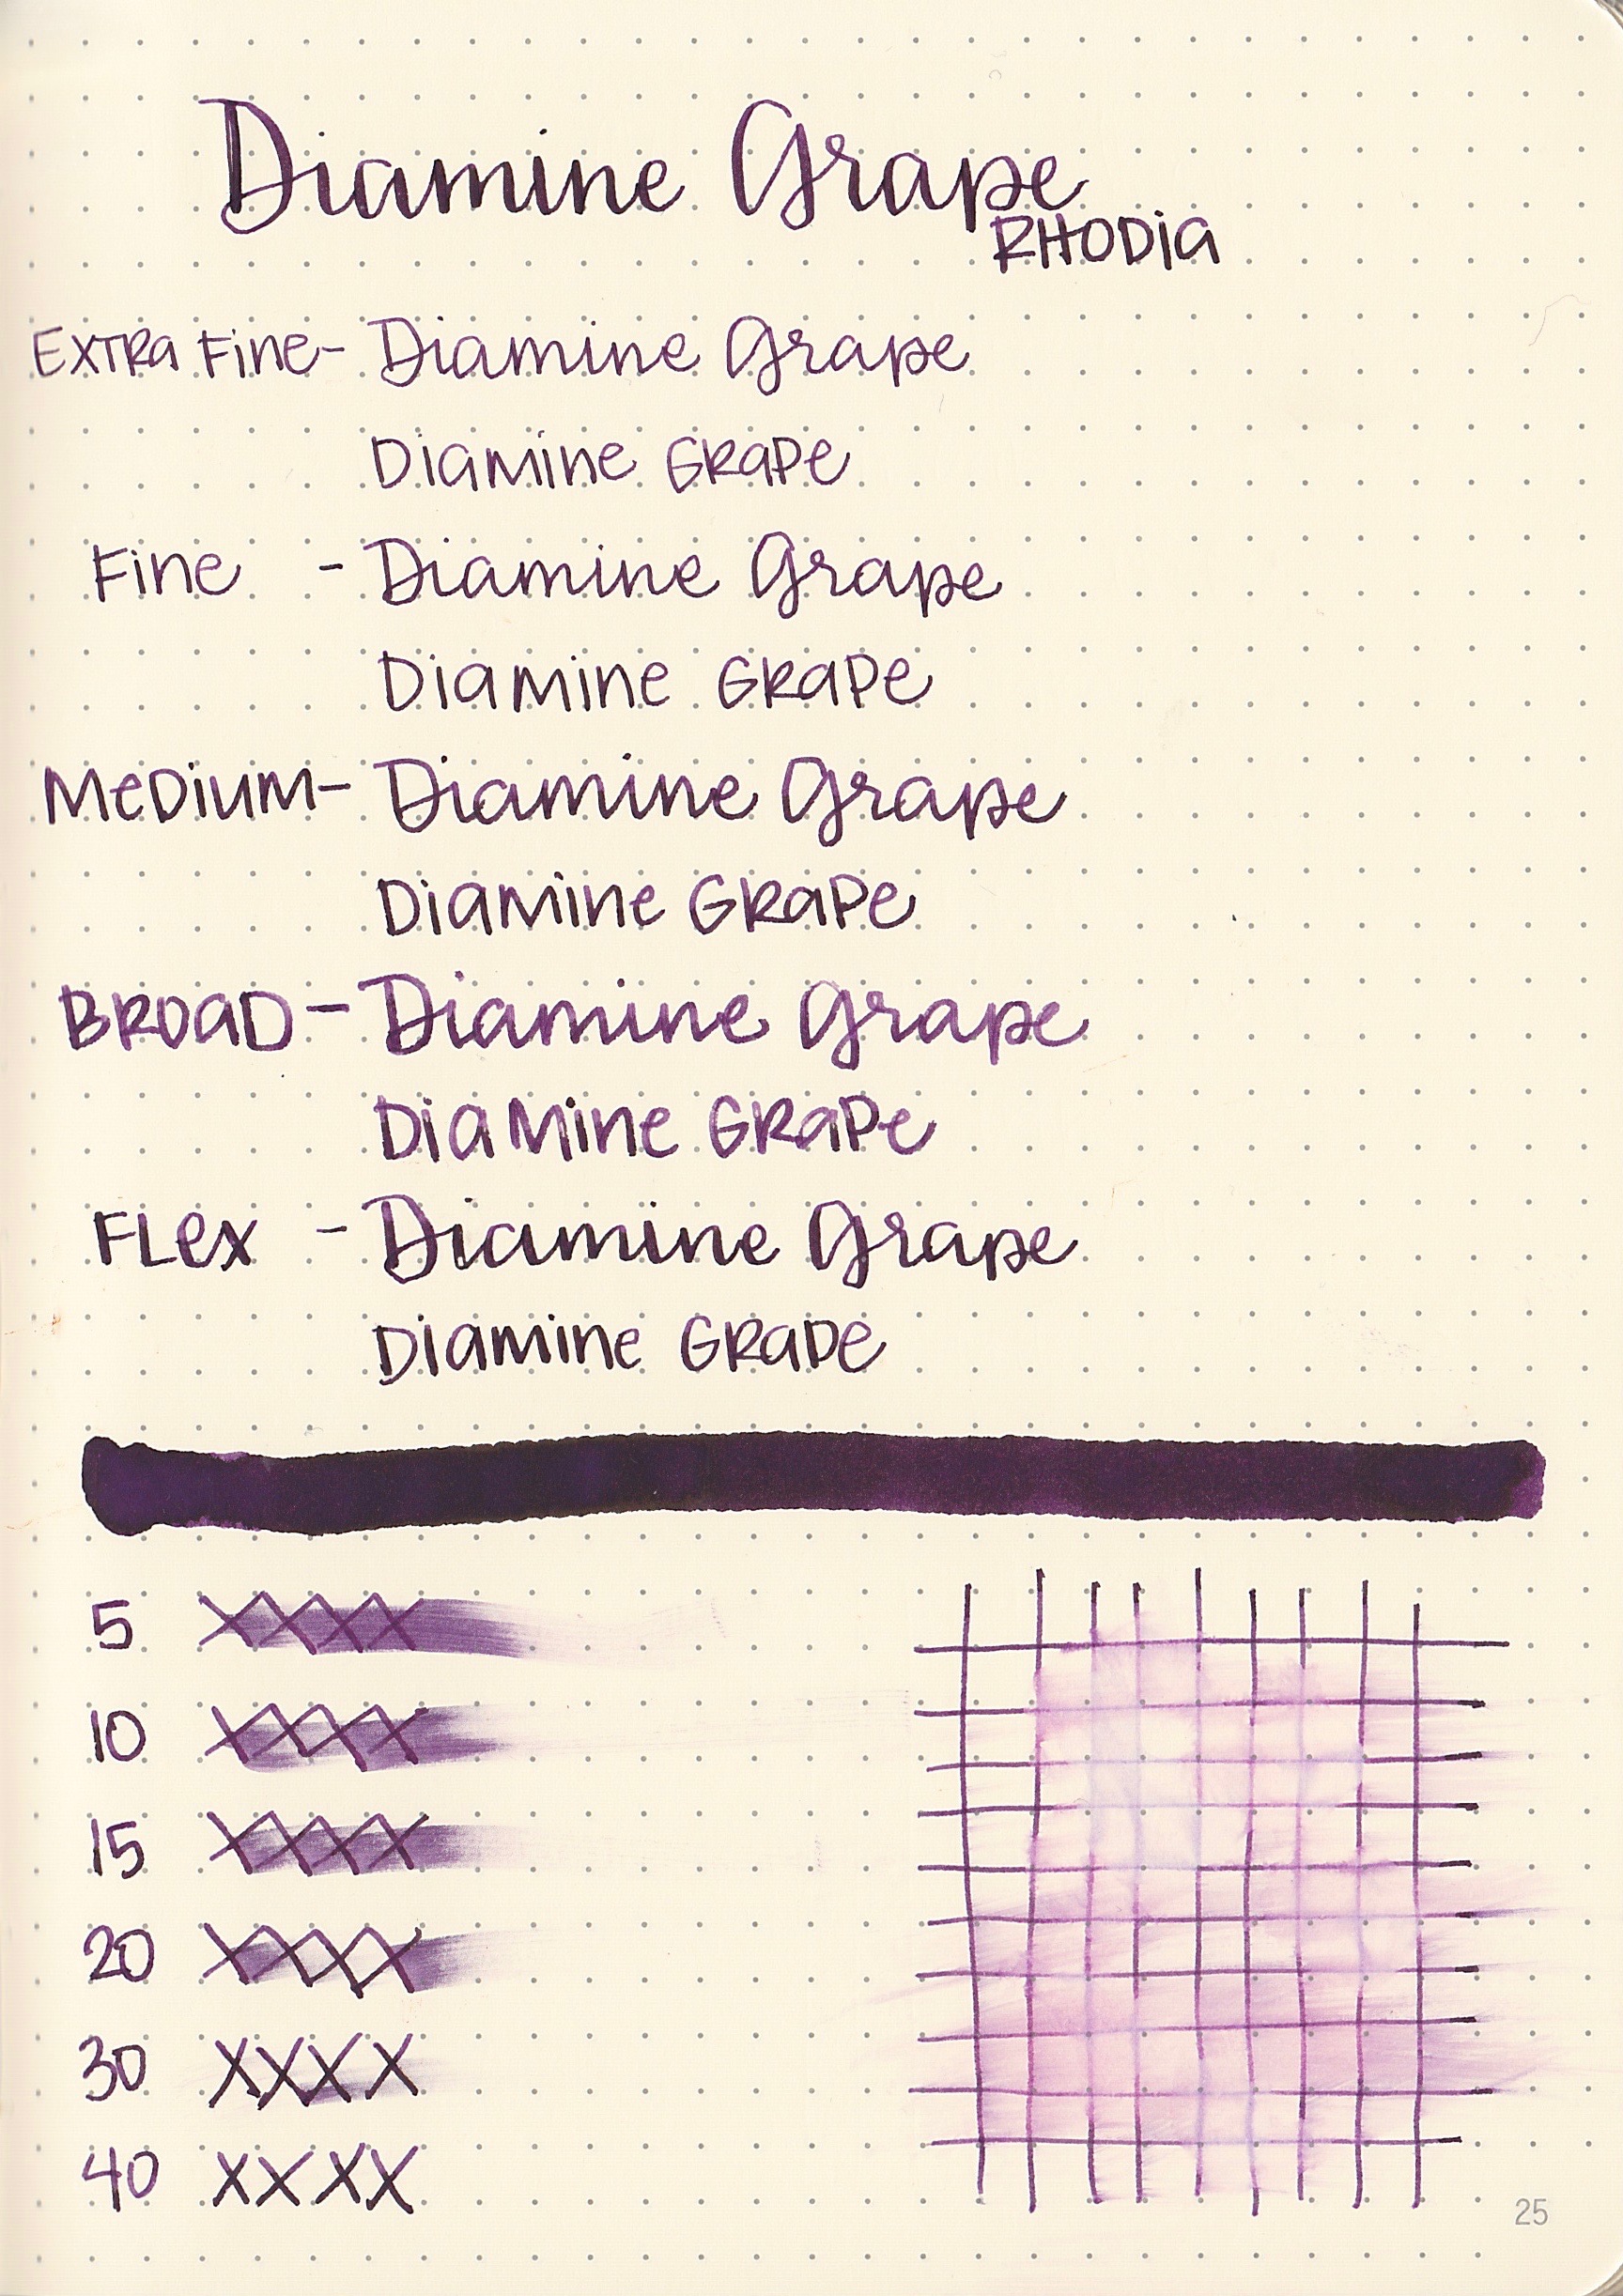 Diamine Grape
RHODIA
EXTRA Fine - Diamine Grape
Diamine GRAPE
Fine - Diamine Grape
Diamine GRAPE
MeDIUM - Diamine Grape
Diamine GRAPE
BROAD - Diamine Grape
DiaMine GRAPE
FLex - Diamine Grape
Diamine GRAPE
5 XXXX
10 XXXX
15 XXXX
20 XXXX
30 XXXX
40 XXXX
25